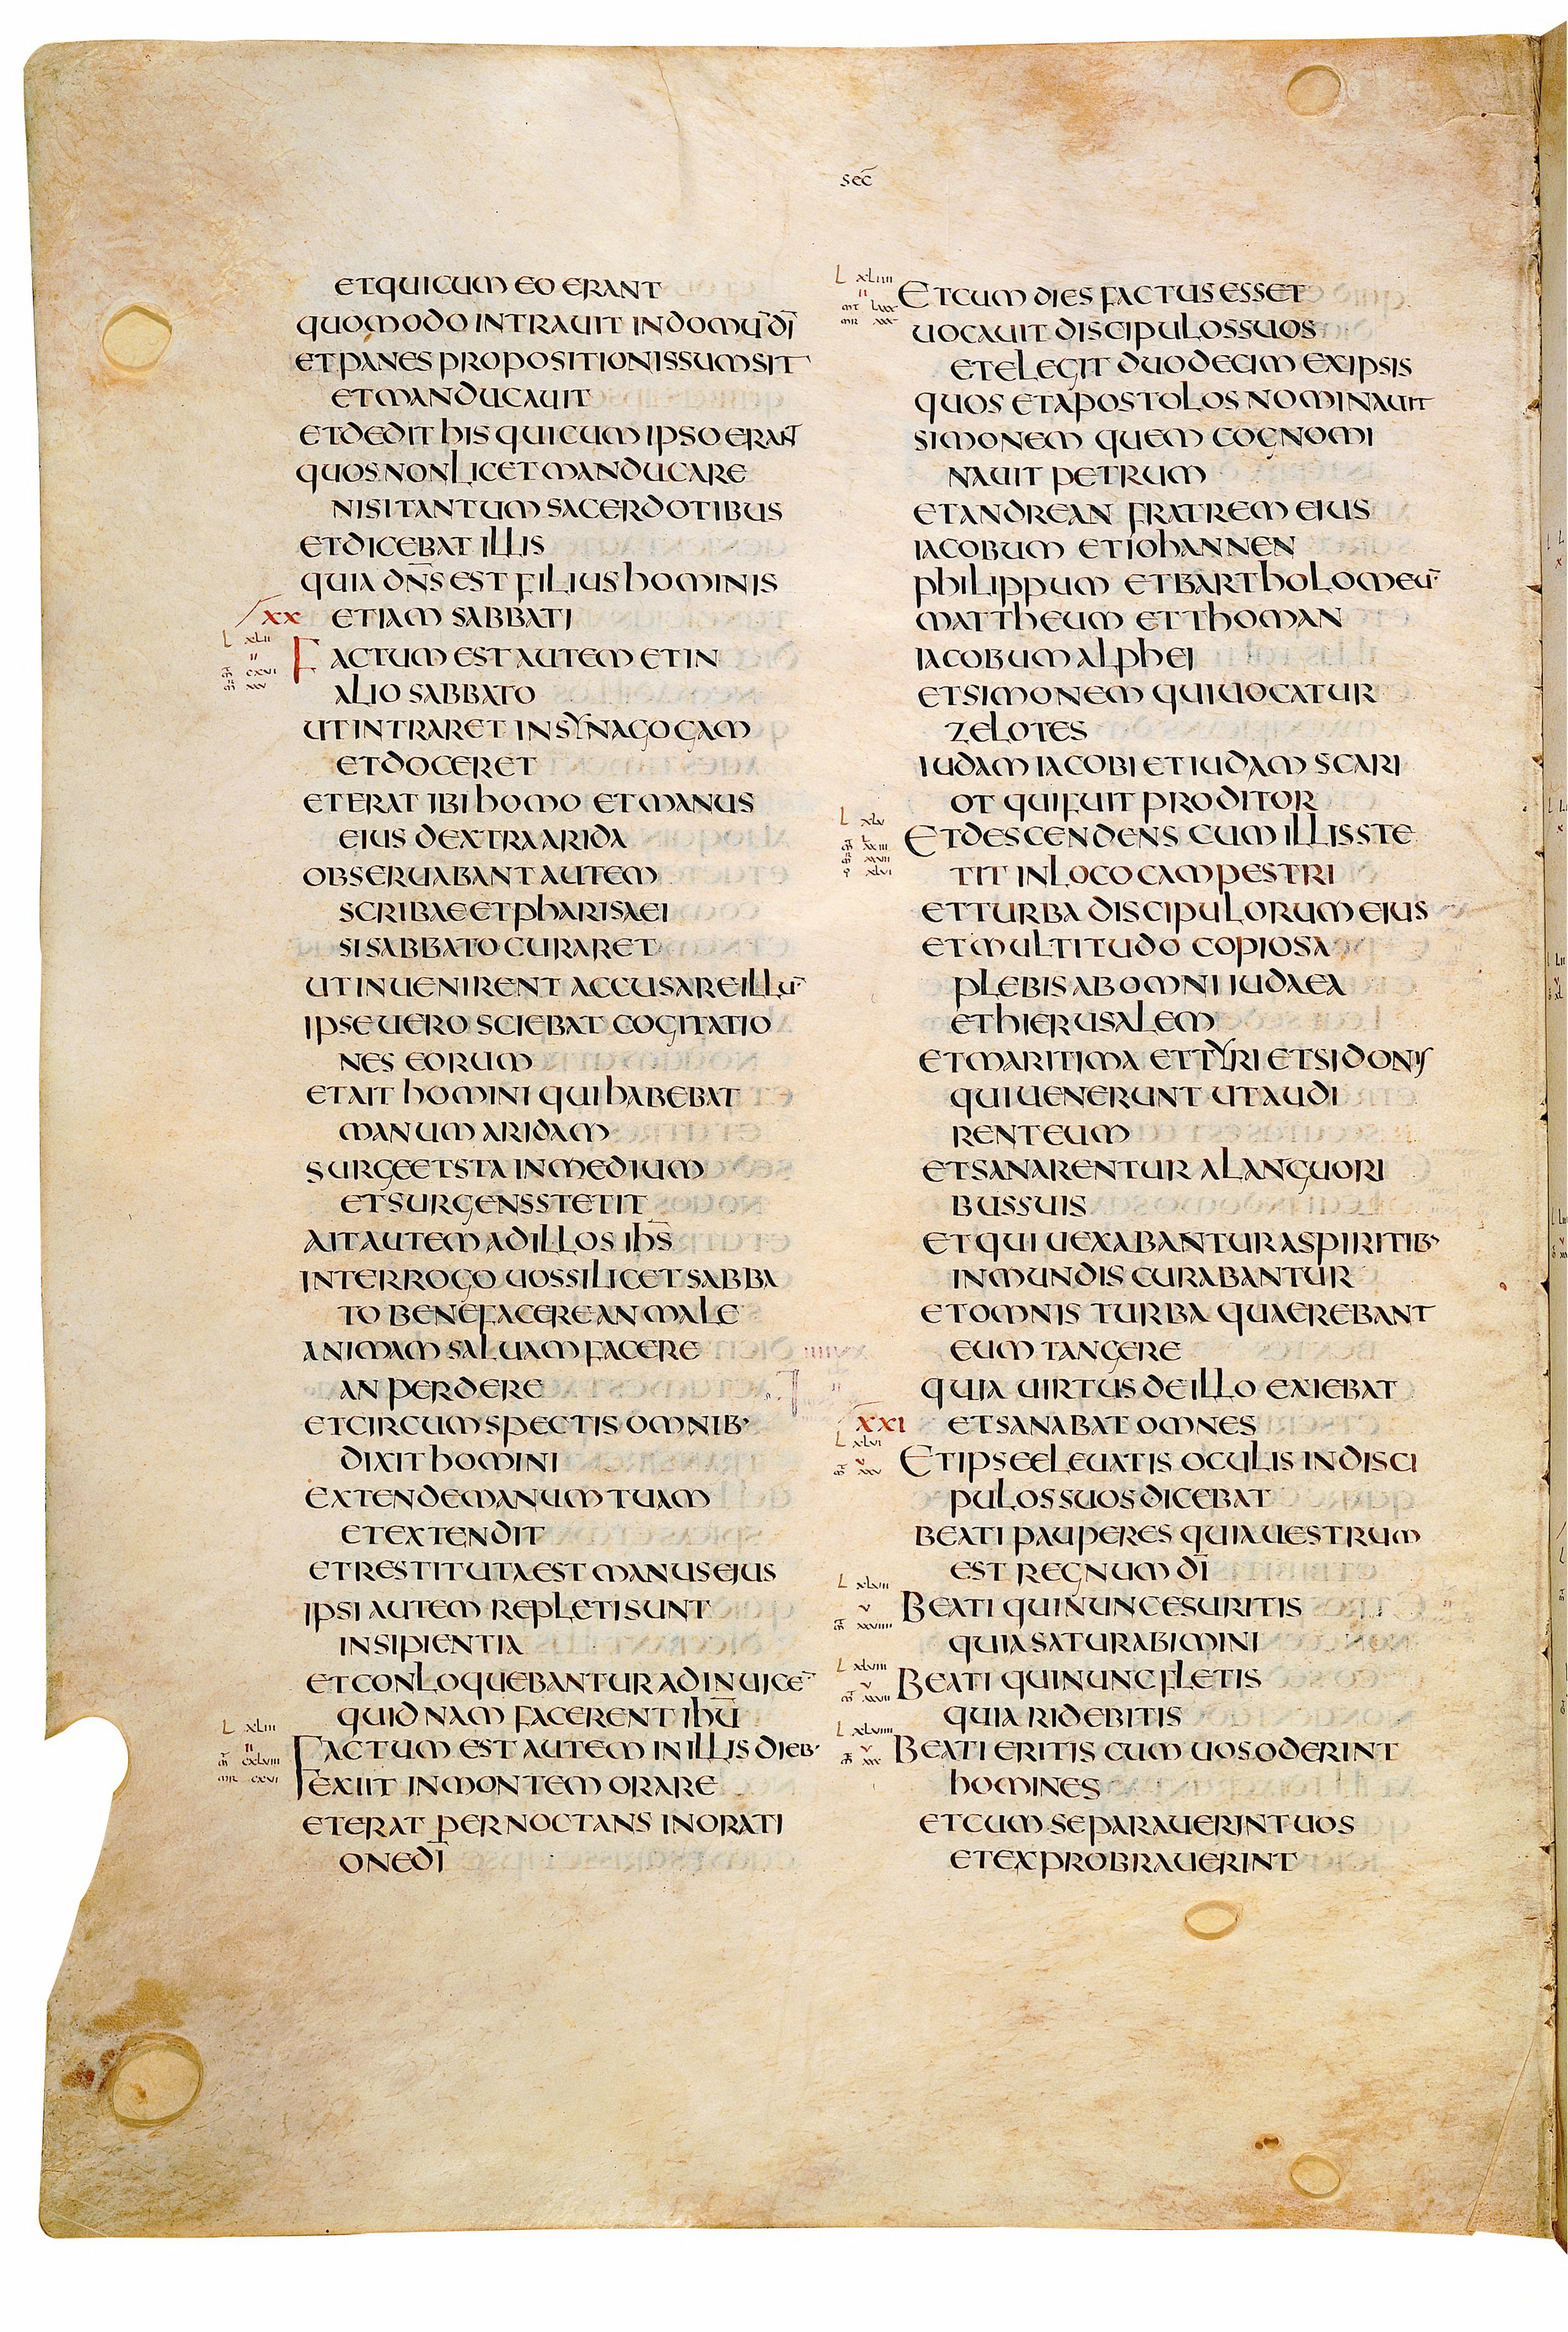 sec̄
ETQUICUM EO ERANT
QUOMODO INTRAUIT INDOMŪ DĪ
ETPANES PROPOSITIONISSUMSIT
ETMANDUCAUIT
ETDEDIT HIS QUICUM IPSO ERANT
QUOS NONLICETMANDUCARE
NISITANTUM SACERDOTIBUS
ETDICEBAT ILLIS
QUIA DN̄S EST FILIUS HOMINIS
XX
ETIAM SABBATI
L XLII
II
CXVI
XXV
FACTUM EST AUTEM ETIN
ALIO SABBATO
UTINTRARET INSYNAGOGAM
ETDOCERET
ETERAT IBI HOMO ETMANUS
EIUS DEXTRA ARIDA
OBSERUABANT AUTEM
SCRIBAE ETPHARISAEI
SISABBATO CURARET
UTINUENIRENT ACCUSAREILLŪ
IPSE UERO SCIEBAT COGITATIO
NES EORUM
ETAIT HOMINI QUI HABEBAT
MANUM ARIDAM
SURGEETSTA INMEDIUM
ETSURGENSSTETIT
AITAUTEM ADILLOS IHS̄
INTERROGO UOSSILICETSABBA
TO BENEFACEREAN MALE
ANIMAM SALUAM FACERE
AN PERDERE
ETCIRCUMSPECTIS OMNIB·
DIXIT HOMINI
EXTENDEMANUM TUAM
ETEXTENDIT
ETRESTITUTAEST MANUSEIUS
IPSI AUTEM REPLETISUNT
INSIPIENTIA
ETCONLOQUEBANTUR ADINUICĒ
QUIDNAM FACERENT IHŪ
L XLIII
II
CXLVIII
MR CXVI
FACTUM EST AUTEM INILLIS DIEB·
EXIIT INMONTEM ORARE
ETERAT PERNOCTANS INORATI
ONEDĪ
L XLIIII
II
MT LXXX
MR XXX
ETCUM DIES FACTUS ESSET
UOCAUIT DISCIPULOSSUOS
ETELEGIT DUODECIM EXIPSIS
QUOS ETAPOSTOLOS NOMINAUIT
SIMONEM QUEM COGNOMI
NAUIT PETRUM
ETANDREAN FRATREM EIUS
IACOBUM ETIOHANNEN
PHILIPPUM ETBARTHOLOMEŪ
MATTHEUM ETTHOMAN
IACOBUMALPHEI
ETSIMONEM QUIUOCATUR
ZELOTES
IUDAM IACOBI ETIUDAM SCARI
OT QUIFUIT PRODITOR
L XLV
XXIII
XXVII
XLVI
ETDESCENDENS CUM ILLISSTE
TIT INLOCO CAMPESTRI
ETTURBA DISCIPULORUM EIUS
ETMULTITUDO COPIOSA
PLEBIS ABOMNI IUDAEA
ETHIERUSALEM
ETMARITIMA ETTYRI ETSIDONIS
QUIUENERUNT UTAUDI
RENTEUM
ETSANARENTUR ALANGUORI
BUSSUIS
ETQUI UEXABANTURASPIRITIB·
INMUNDIS CURABANTUR
ETOMNIS TURBA QUAEREBANT
EUM TANGERE
QUIA UIRTUS DEILLO EXIEBAT
XXI
ETSANABAT OMNES
L XLVI
V
XXV
ETIPSEELEUATIS OCULIS INDISCI
PULOSSUOSDICEBAT
BEATI PAUPERES QUIAUESTRUM
EST REGNUM DĪ
L XLVII
V
XXVIIII
BEATI QUINUNCESURITIS
QUIASATURABIMINI
L XLVIII
V
XXVII
BEATI QUINUNCFLETIS
QUIA RIDEBITIS
L XLVIIII
V
XXX
BEATI ERITIS CUM UOSODERINT
HOMINES
ETCUM SEPARAUERINTUOS
ETEXPROBRAUERINT